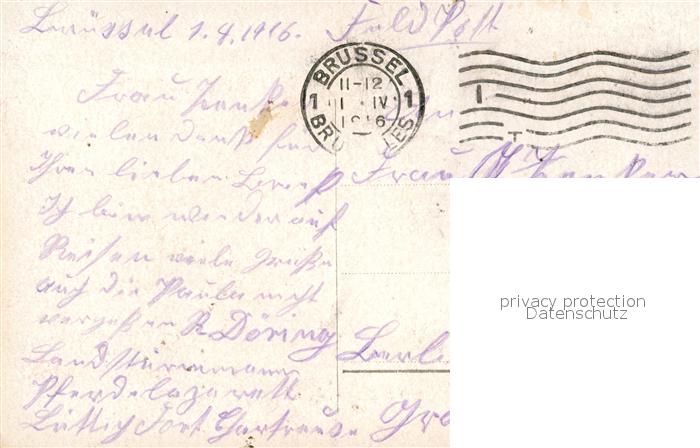 Brüssel 1.4.1916. Feld Post
BRÜSSEL
11-12
1 1 IV 1
1916
Frau Zenker
vielen Dank für
Ihren lieben Brief
Ich bin wieder auf
Reisen viele Grüße
auch die Paula nicht
vergeßen R. Döring
Landsturmmann
Pferdelazarett
Lüttich Fort Chartreuse
Frau Zenker
Berli
privacy protection
Datenschutz